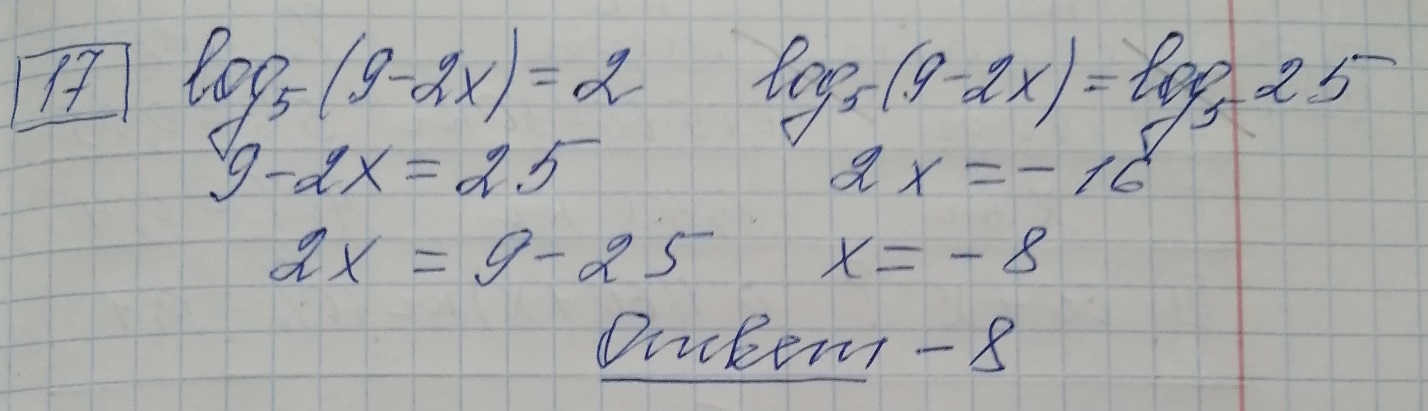 17 log₅(9-2x)=2 log₅(9-2x)=log₅25
9-2x=25 2x=-16
2x=9-25 x=-8
Ответ -8